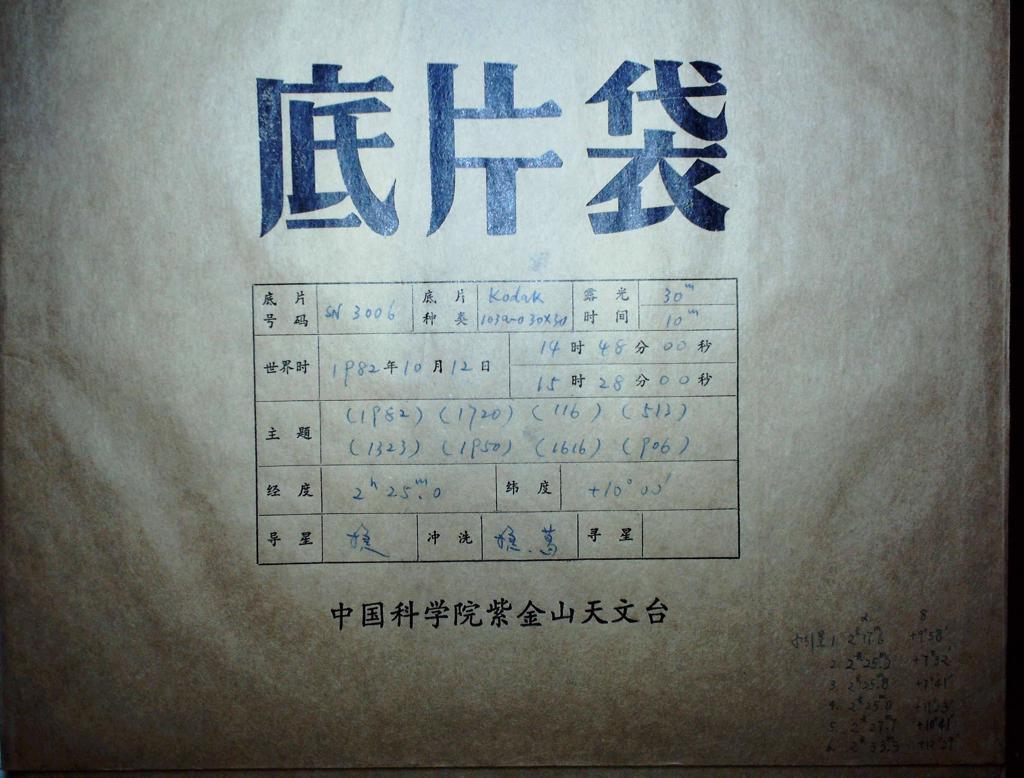 底片袋
底片号码 SN 3006 底片种类 Kodak 103a-O 30×30 露光时间 30m 10m
世界时 1982年10月12日 14时48分00秒
15时28分00秒
主题 (1982) (1720) (116) (513)
(1323) (1950) (1616) (906)
经度 2h 25m.0 纬度 +10° 00'
导星 冲洗 寻星
中国科学院紫金山天文台
α δ
1. 2h17m.6 +9°58'
2. +7°32'
3. 2h25m.8 +7°41'
4. 2h25m.0
5. 2h27m.7 +10°41'
6. 2h33m.5 +12°27'